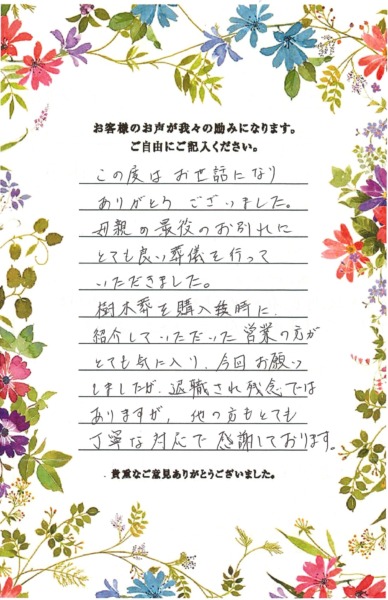 お客様のお声が我々の励みになります。
ご自由にご記入ください。
この度は お世話になり
ありがとう ございました。
母親の最後のお別れに
とても良い葬儀を行って
いただきました。
樹木葬を購入後時に
紹介していただいた営業の方が
とても気に入り、今回お願い
しましたが、退職され残念では
ありますが、他の方もとても
丁寧な対応で感謝しております。
貴重なご意見ありがとうございました。